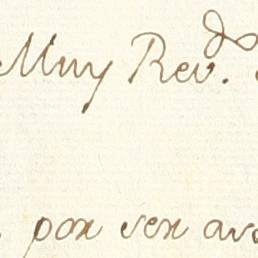 Muy Rev.do
por ser